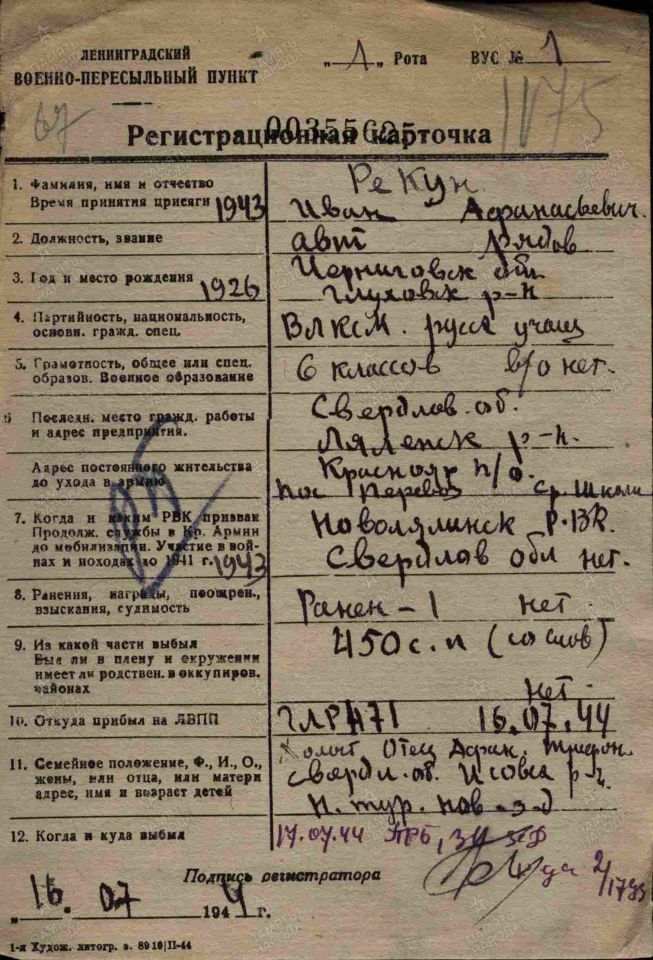 ЛЕНИНГРАДСКИЙ
ВОЕННО-ПЕРЕСЫЛЬНЫЙ ПУНКТ
„1„ Рота ВУС № 1
67
1175
00355625
Регистрационная карточка
1. Фамилия, имя и отчество
Время принятия присяги 1943
Рекун
Иван Афанасьевич.
2. Должность, звание
авт рядов
3. Год и место рождения 1926
Черниговск обл
Глуховск р-н
4. Партийность, национальность,
основн. гражд. спец.
ВЛКСМ. русск учащ
5. Грамотность, общее или спец.
образов. Военное образование
6 классов в/о нет.
6 Последн. место гражд. работы
и адрес предприятия.
Свердлов. об.
Ляленск р-н.
Адрес постоянного жительства
до ухода в армию
Краснояр п/о.
пос Перевоз ср. школа
7. Когда и каким РВК призван
Продолж. службы в Кр. Армии
до мобилизации. Участие в вой-
нах и походах до 1941 г. 1943
Новолялинск Р.ВК.
Свердлов обл нет.
8. Ранения, награды, поощрен.,
взыскания, судимость
Ранен - 1 нет.
9. Из какой части выбыл
Был ли в плену и окружении
имеет ли родствен. в оккупиров.
районах
450 с.п (со слов)
нет.
10. Откуда прибыл на ЛВПП
ГЛР 1171 16.07.44
11. Семейное положение, Ф., И., О.,
жены, или отца, или матери
адрес, имя и возраст детей
Холост Отец Афан. Трифон.
Свердл. об. Исовск р-н.
п. тур. пов
12. Когда и куда выбыл
17.07.44
Подпись регистратора
„16. 07 1944 г.
1-я Худож. литогр. з. 8910|II-44